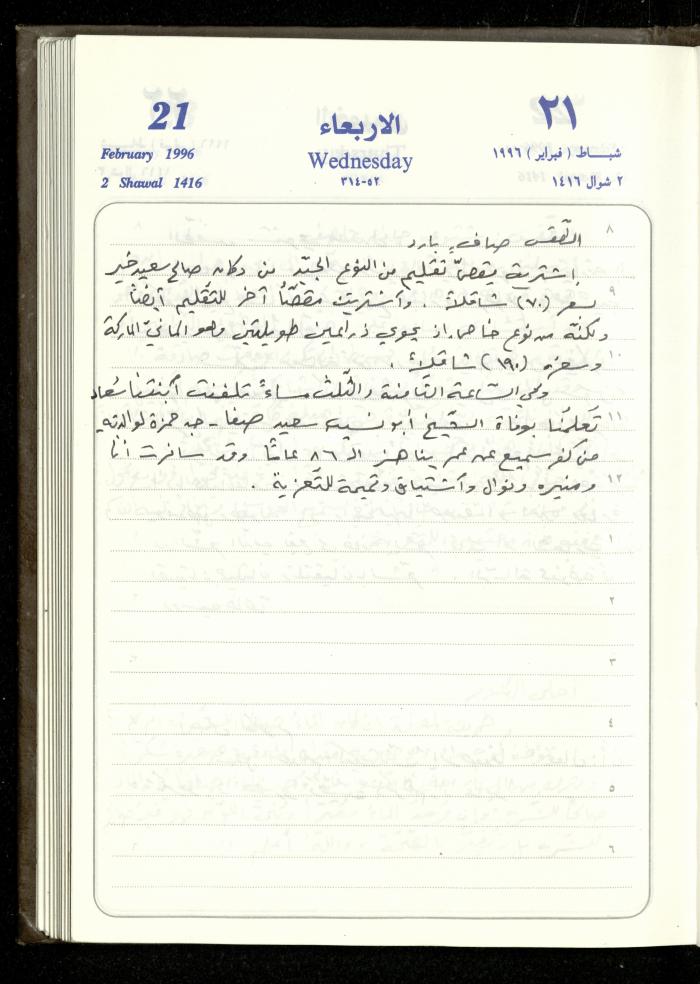 21
الاربعاء
٢١
February 1996
Wednesday
شبـاط ( فبراير ) ١٩٩٦
2 Shawal 1416
٥٢-٣١٤
٢ شوال ١٤١٦
٨
الطقس صافٍ بارد
إشتريت مقصّ تقليم من النوع الجيّد من دكان صالح سعيد خير
٩
بسعر (٧٠) شاقلاً . وأشتريت مقصّاً آخر للتقليم أيضاً
ولكنّه من نوع خاص إذ يحوي ذراعين طويلتين وهو ألمانيّ الماركة
١٠
وسعره (١٩٠) شاقلاً .
وفي السّاعة الثّامنة والثّلث مساءً تلفنت أبنتنا سُعاد
١١
تُعلمنا بوفاة الشّيخ أبو نسيب سعيد صفا - جد حمزة لوالدته
من كفر سميع عن عمر يناهز الـ ٨٦ عامًا وقد سافرت أنا
١٢
ومنيره ونوال وأشتياق وتميمة للتّعزية .
١
٢
٣
٤
٥
٦